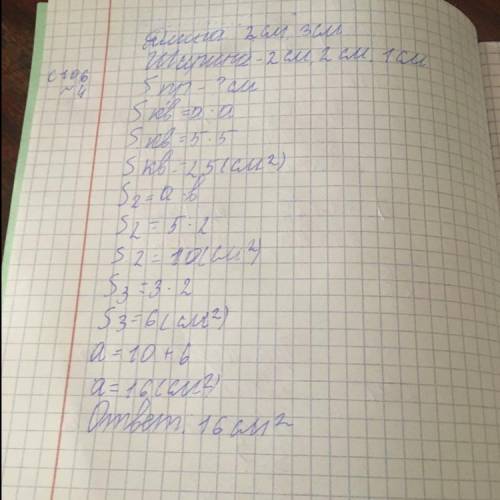 Длина 2 см, 3 см
Ширина - 2 см, 2 см, 1 см
с 106
№ 4
S пр - ? см
S кв = a · a
S кв = 5 · 5
S кв = 25 (см²)
S₂ = a · в
S₂ = 5 · 2
S₂ = 10 (см²)
S₃ = 3 · 2
S₃ = 6 (см²)
a = 10 + 6
a = 16 (см²)
Ответ. 16 см²